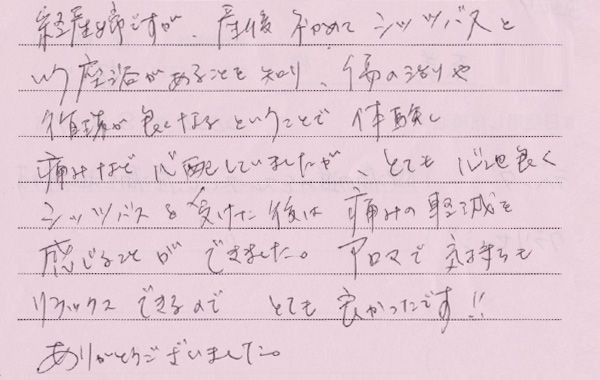 経産婦ですが、産後初めて シッツバスと
いう座浴があることを知り、傷の治りや
循環が良くなるということで 体験し
痛みなど心配していましたが、とても心地良く
シッツバスを受けた後は 痛みの軽減を
感じることが できました。アロマで気持ちも
リラックスできるので とても良かったです!!
ありがとうございました。